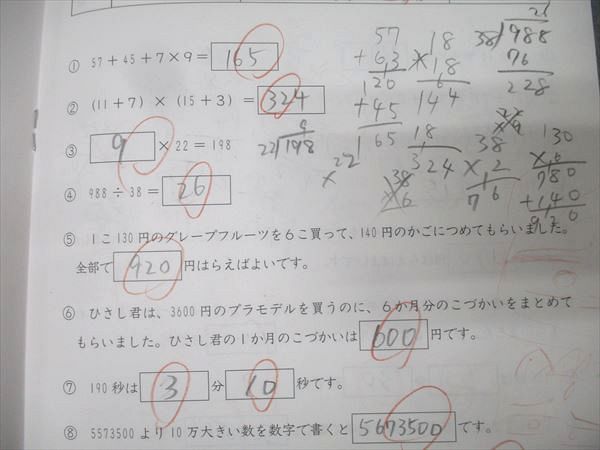 ① 57+45+7×9=165
② (11+7)×(15+3)=324
③ 9×22=198
④ 988÷38=26
⑤ 1こ130円のグレープフルーツを6こ買って、140円のかごにつめてもらいました。
全部で920円はらえばよいです。
⑥ ひさし君は、3600円のプラモデルを買うのに、6か月分のこづかいをまとめて
もらいました。ひさし君の1か月のこづかいは600円です。
⑦ 190秒は3分10秒です。
⑧ 5573500より10万大きい数を数字で書くと5673500です。
57
+63
120
+45
165
18
×18
144
18
324
9
22)198
38
×6
38)988
76
228
38
×2
76
130
×6
780
+140
920